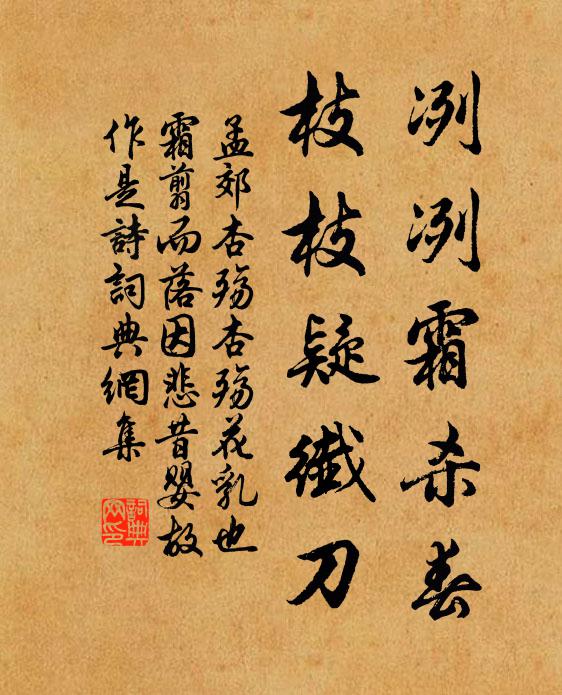 冽冽霜杀春
枝枝疑纖刀
孟郊杏殇杏殇花乳也
霜翦而落因悲昔嬰故
作是詩詞典網集
詞典
网印